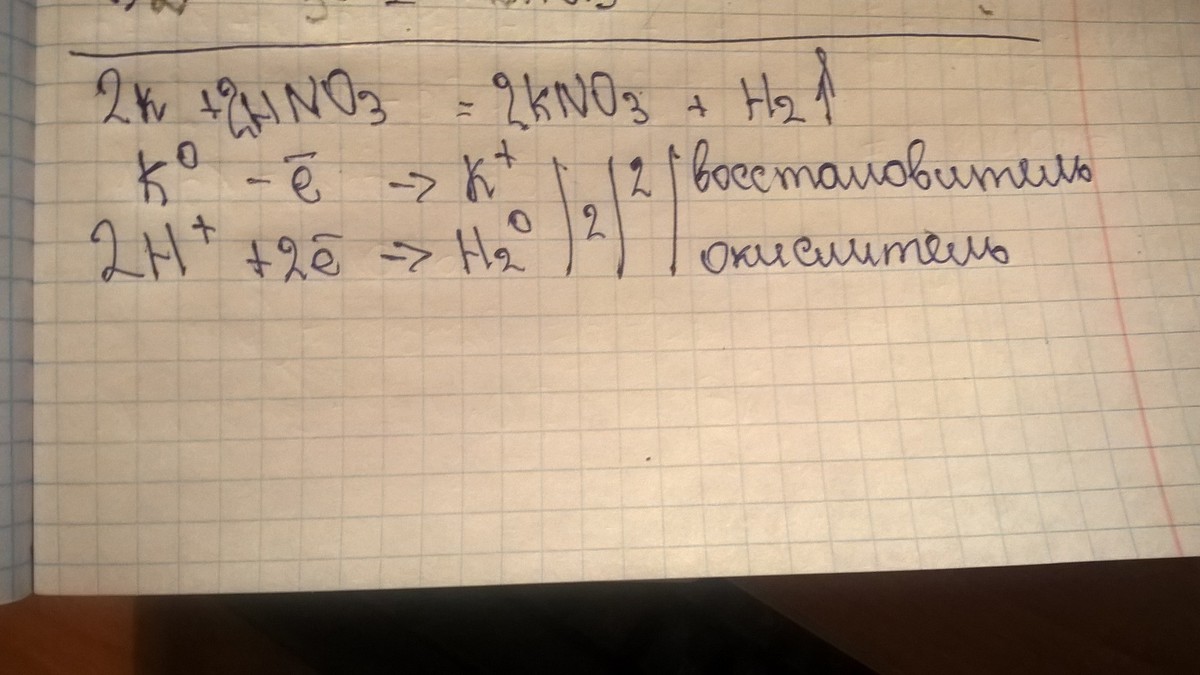 2K + 2HNO3 = 2KNO3 + H2↑
K⁰ - ē → K⁺ | | 2 | восстановитель
2H⁺ + 2ē → H2⁰ | 2 | | окислитель